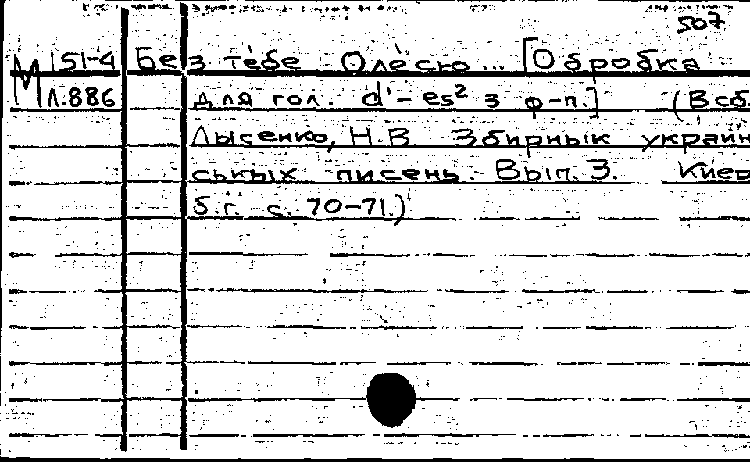 507
М 151-4 Без тебе Олесю... [Обробка
Л.886 для гол. d'-es² з ф-п.] (В сб.
Лысенко, Н.В Збирнык украин
ськых писень. Вып. 3. Киев
б.г. с. 70-71.)